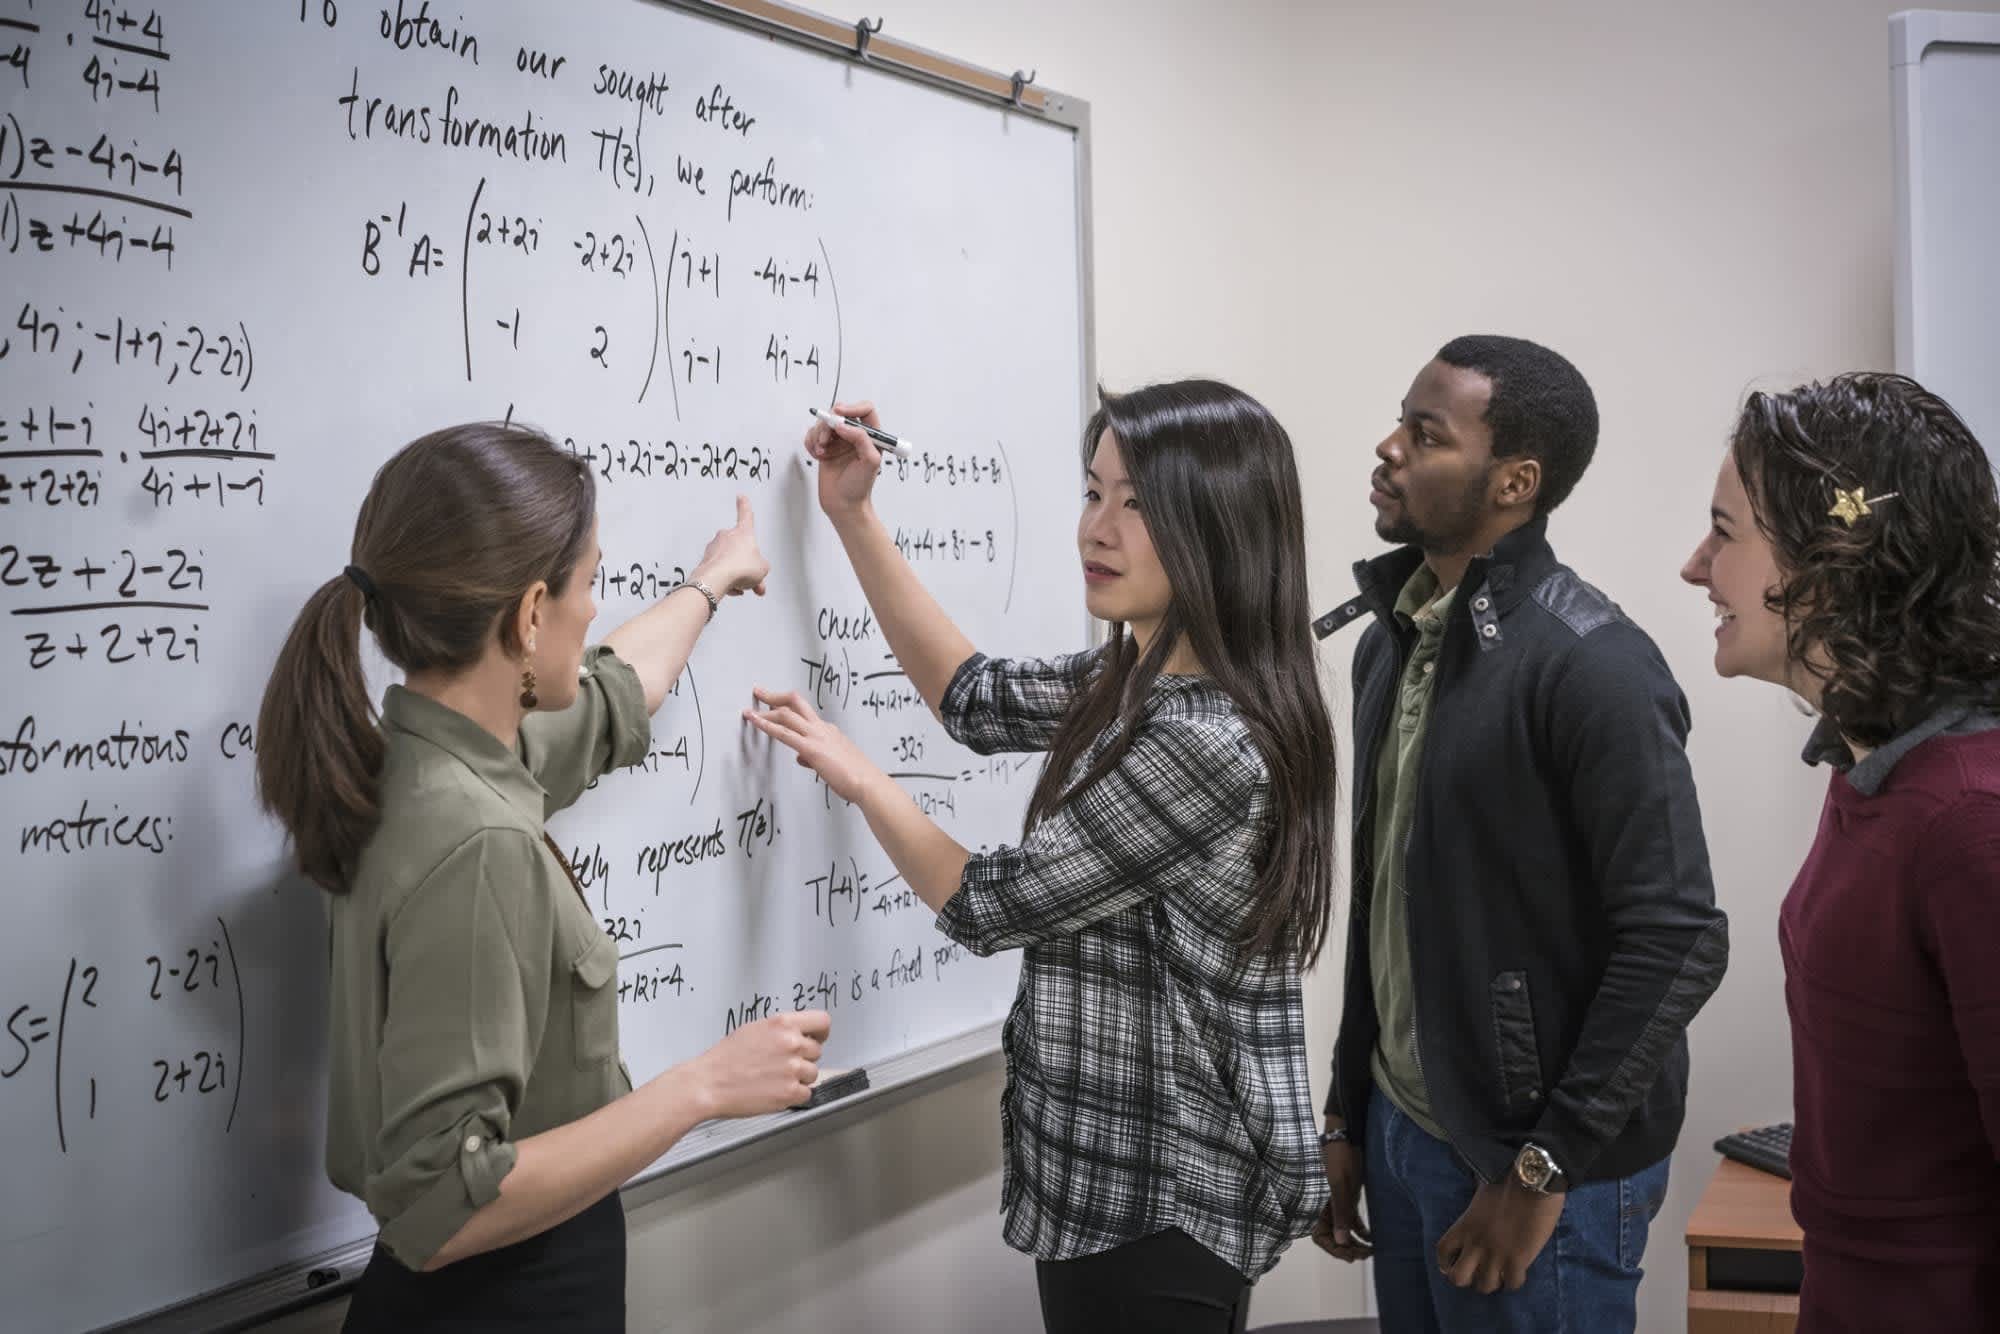 4i+4
-4 · 4i-4
)z-4i-4
)z+4i-4
, 4i; -1+i, -2-2i)
z+1-i · 4i+2+2i
z+2+2i 4i+1-i
2z+2-2i
z+2+2i
sformations ca
matrices:
S= (2 2-2i
1 2+2i)
To obtain our sought after
transformation T(z), we perform:
B⁻¹A= (2+2i -2+2i) (i+1 -4i-4
-1 2) (i-1 4i-4)
2+2+2i-2i-2+2-2i -8i-8i-8+8-8i
1+2i-2 4i+4+8i-8
i-4)
tely represents T(z).
32i
+12i-4.
Check:
T(4i)=
-4-12i+12
-32i = -1+i ✓
12i-4
T(-4)=
-4i+12i
Note: z=4i is a fixed point